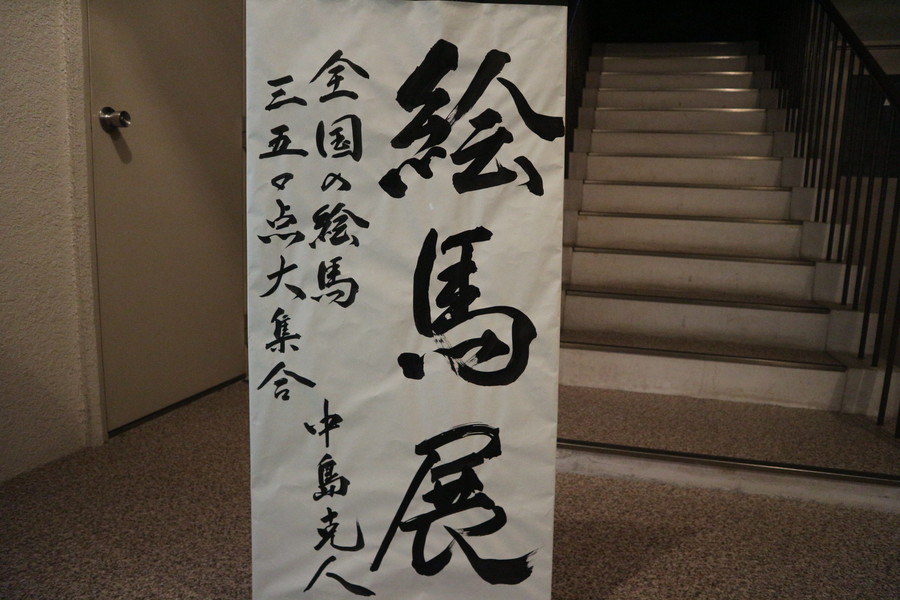 絵馬展
全国の絵馬
三五〇点大集合
中島克人